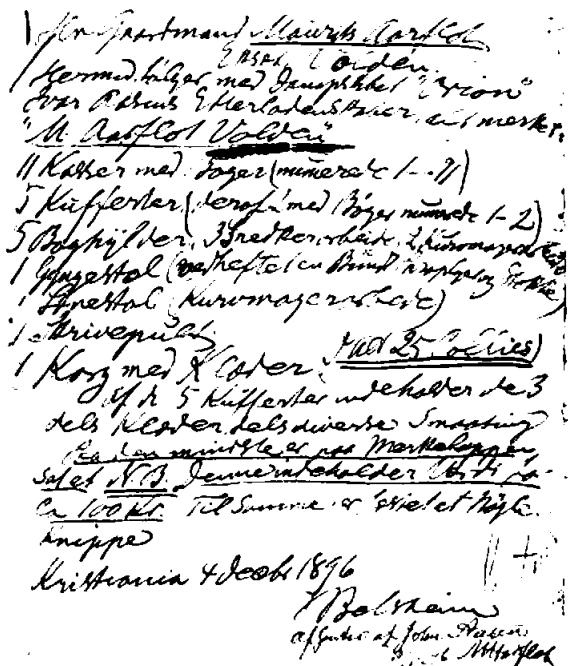 Hr Gaardmand Mauritz Aarflot
Ørsten Volden
Hermed følger med Dampskibet "Orion"
Ivar Aasens Efterladenskaber, alt merket:
"M. Aarflot Volden"
11 Kasser med Bøger (numerede 1-11)
5 Kufferter (deraf 2 med Bøger numrede 1-2)
5 Boghylder, 3 Snedkerarbeide, 2 kurvmager
1 Gyngestol (vedheftet en Bundt Paraplyer og Stokke)
1 Lænestol (Kurvmagerarbeide)
1 Skrivepult
1 Korg med Klæder. (Ialt 25 Collies)
Af de 5 Kufferter indeholder de 3
dels Klæder, dels diverse Smaating
Paa den mindste er paa Merkelappen
sat et N.B. Denne indeholder Værdi for
Ca 100 Kr. Til Samme er festet et Nøgle-
knippe
Kristiania 4 Decbr 1896
af John Aasen